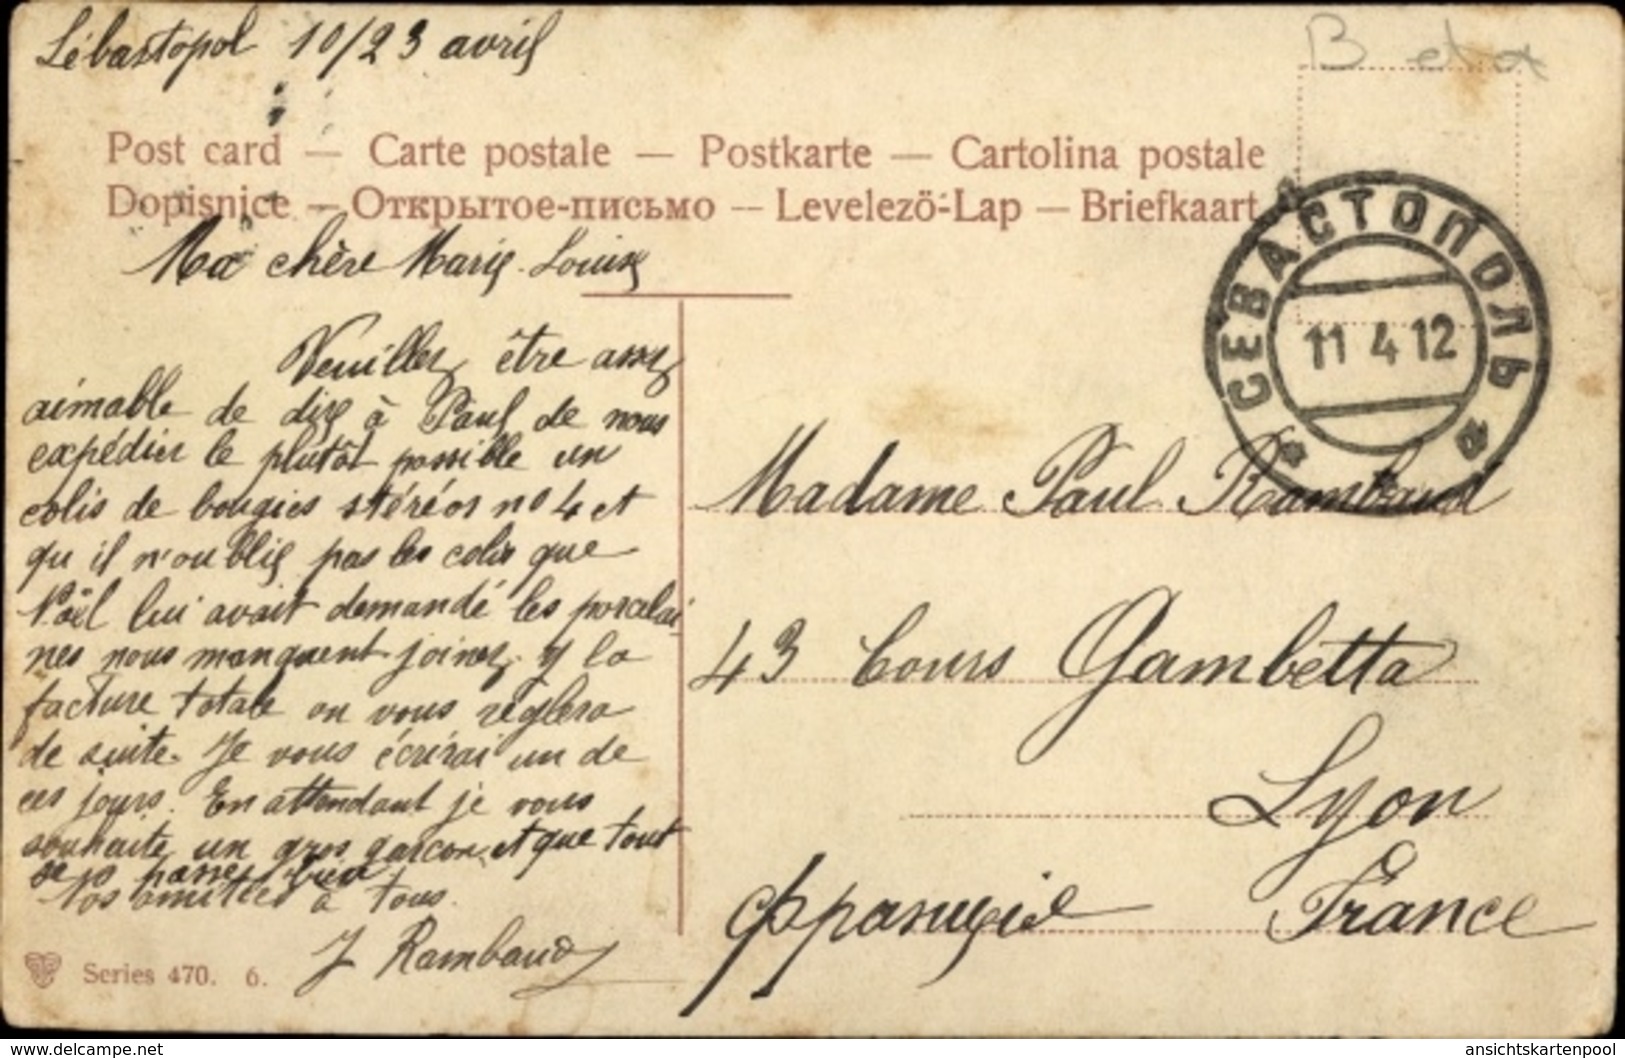 Sébastopol 10/23 avril
B et a
Post card — Carte postale — Postkarte — Cartolina postale
Dopisnice — Открытое-письмо — Levelezö-Lap — Briefkaart
СЕВАСТОПОЛЬ
11 4 12
Ma chère Marie-Louise
Veuillez être assez
aimable de dire à Paul de nous
expédier le plutôt possible un
colis de bougies stéréos no 4 et
qu il n'oublie pas les colis que
Noël lui avait demandé les porcelai-
nes nous manquent joinez y la
facture totale on vous réglera
de suite. Je vous écrirai un de
ces jours. En attendant je vous
souhaite un gros garçon et que tout
se passe bien
Nos amitiés à tous.
J Rambaud
Madame Paul Rambaud
43 Cours Gambetta
Lyon
Франція France
Series 470. 6.
www.delcampe.net
ansichtskartenpool